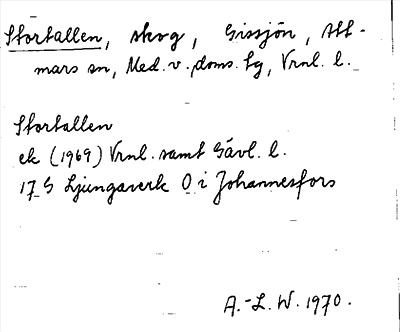 Stortallen, skog, Gissjön, Att-
mars sn, Med. v. doms. tg, Vrnl. l.
Stortallen
ek (1969) Vrnl. samt Gävl. l.
17 G Ljungaverk 0 i Johannesfors
A.-L. W. 1970.